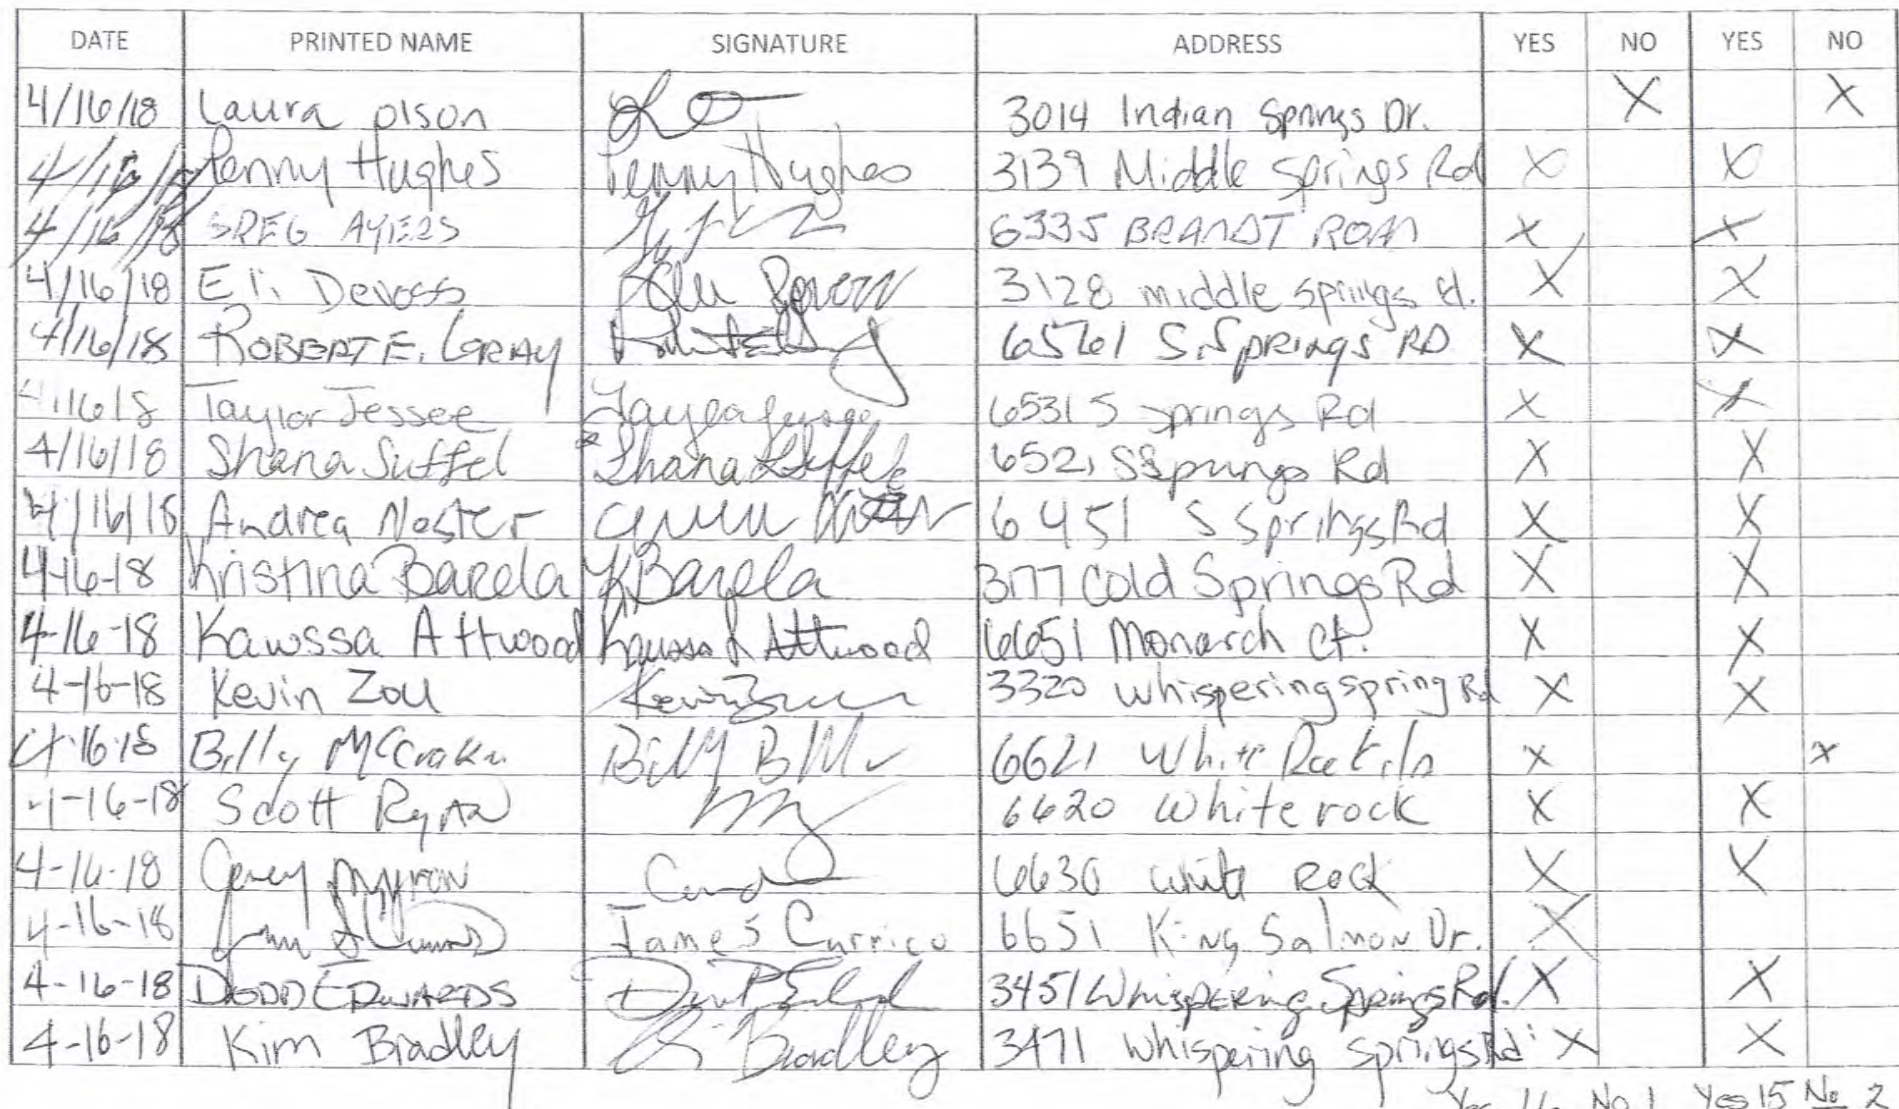 DATE PRINTED NAME SIGNATURE ADDRESS YES NO YES NO
4/16/18 Laura Olson 3014 Indian Springs Dr. X X
4/16/18 Penny Hughes Penny Hughes 3139 Middle Springs Rd X X
4/16/18 GREG AYERS 6335 BRANDT ROAD X X
4/16/18 Eli Devoss 3128 middle springs X X
4/16/18 ROBERT E. GRAY 6561 S. SPRINGS RD X X
4/16/18 Taylor Jessee 6531 S Springs Rd X X
4/16/18 Shana Suffel Shana Suffel 6521 S Springs Rd X X
4/16/18 Andrea Nester 6451 S Springs Rd X X
4-16-18 Kristina Barela KBarela 3177 Cold Springs Rd X X
4-16-18 Kawssa Attwood Attwood 6651 Monarch Ct. X X
4-16-18 Kevin Zou Kevin 3320 Whispering spring Rd X X
4-16-18 Billy McCraken Billy B 6621 White X X
4-16-18 Scott Ryan 6620 White rock X X
4-16-18 6630 White Rock X X
4-16-18 James Currico 6651 King Salmon Dr. X
4-16-18 DODD EDWARDS 3451 Whispering Springs Rd. X X
4-16-18 Kim Bradley Bradley 3471 Whispering Springs Rd X X
Yes 16 No 1 Yes 15 No 2